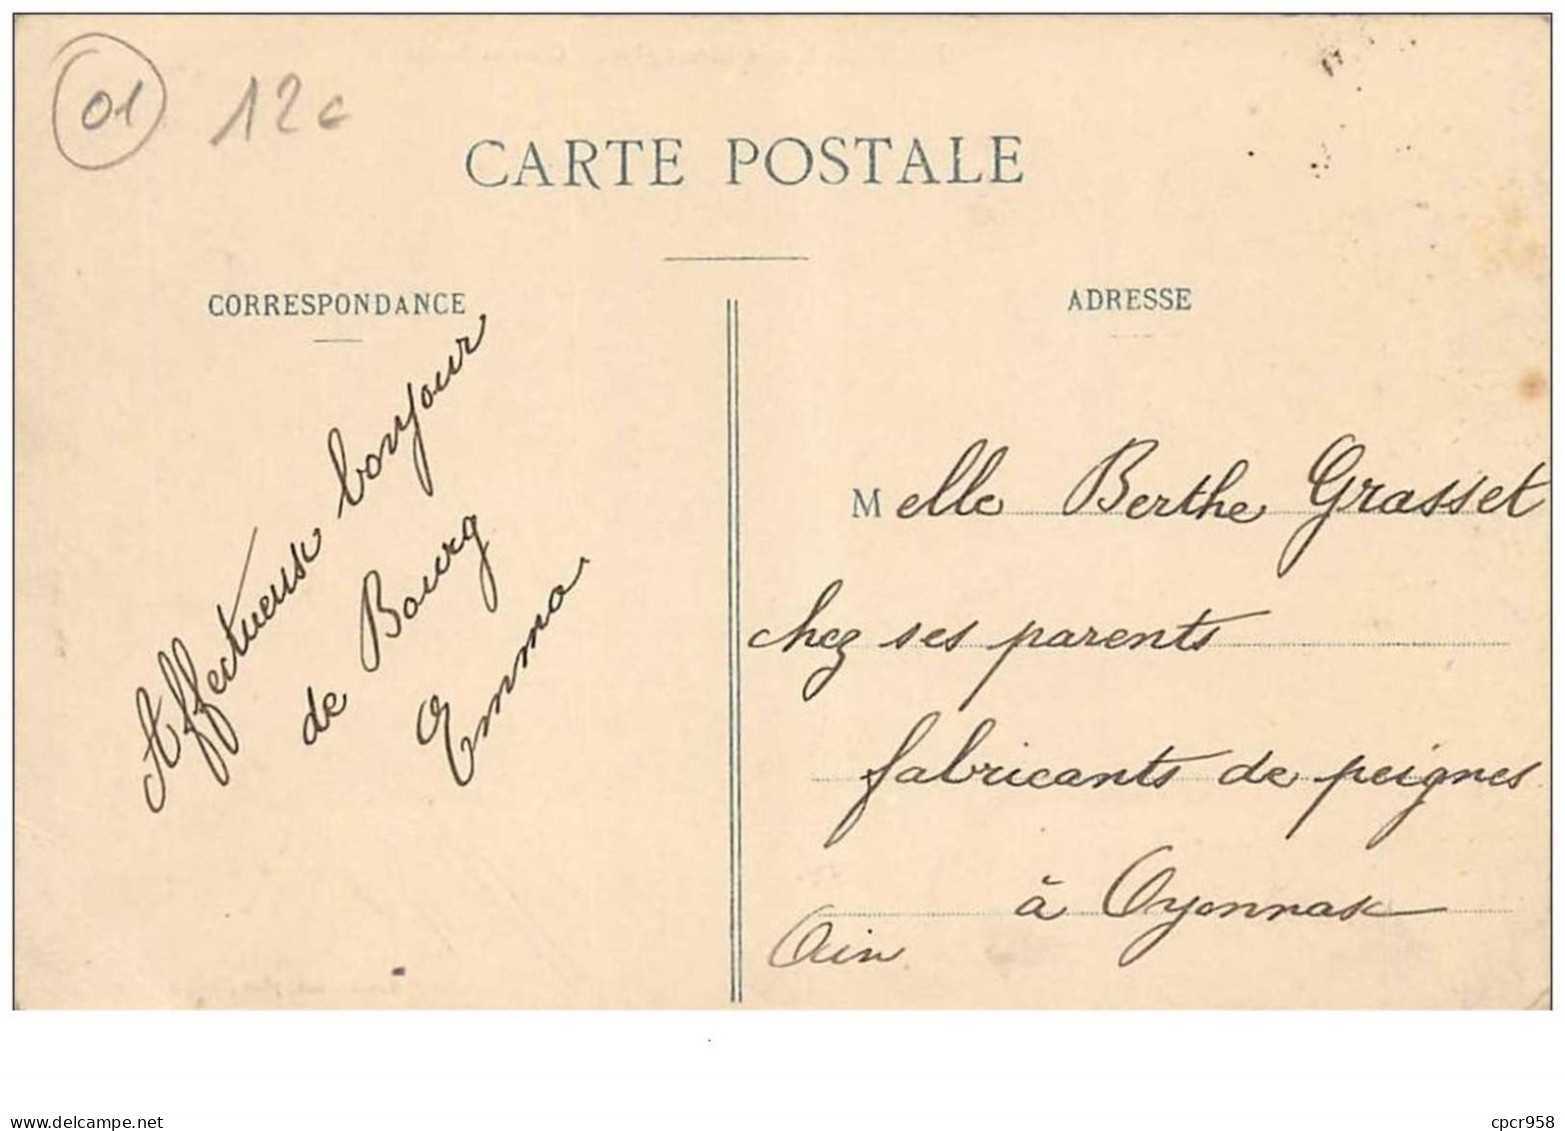 01 12c
CARTE POSTALE
CORRESPONDANCE
ADRESSE
Affectueux bonjour
de Bourg
Emma
Melle Berthe Grasset
chez ses parents
fabricants de peignes
à Oyonnax
Ain
www.delcampe.net
cpcr958